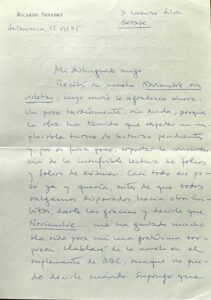 RICARDO SENABRE
D. Lorenzo Silva
Getafe
Salamanca, 17.VII.95
Mi distinguido amigo:
Recibí su novela Noviembre sin
violetas, cuyo envío le agradezco ahora.
Un poco tardíamente, sin duda, porque la
obra ha tenido que esperar en un
placible turno de lecturas pendientes
y, por si fuera poco, soportar la concurrencia
de la ineludible lectura de folios
y folios de examen. Casi todo eso pasó
ya y quería, antes de que todos
salgamos disparados hacia otros
sitios, darle las gracias y decirle que
Noviembre... me ha gustado mucho.
Ha sido para mí una gratísima sorpresa.
Hablaré de la novela en el
suplemento de ABC, aunque no puedo
decirle cuándo. Supongo que